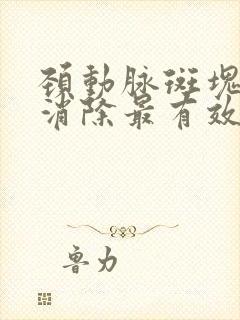 頚動脉斑塊
消除最有效
魯力